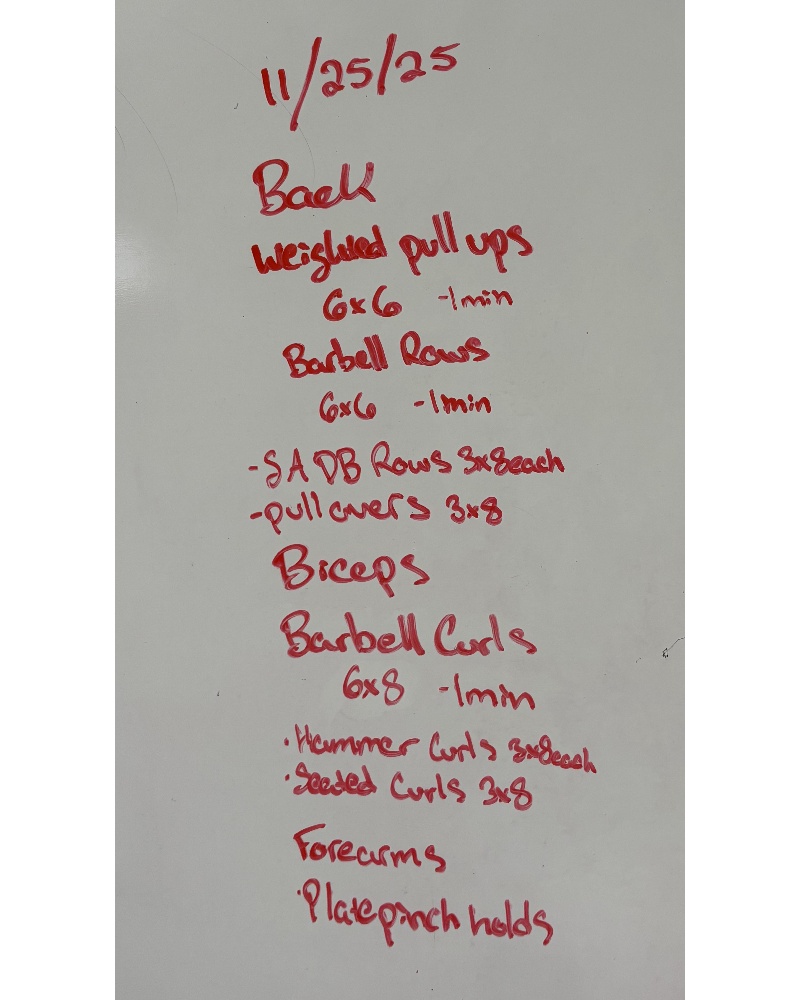 11/25/25
Back
Weighted pull ups
6x6 -1min
Barbell Rows
6x6 -1min
-SA DB Rows 3x8each
-pullovers 3x8
Biceps
Barbell Curls
6x8 -1min
·Hammer Curls 3x8each
·Seated Curls 3x8
Forearms
·Plate pinch holds